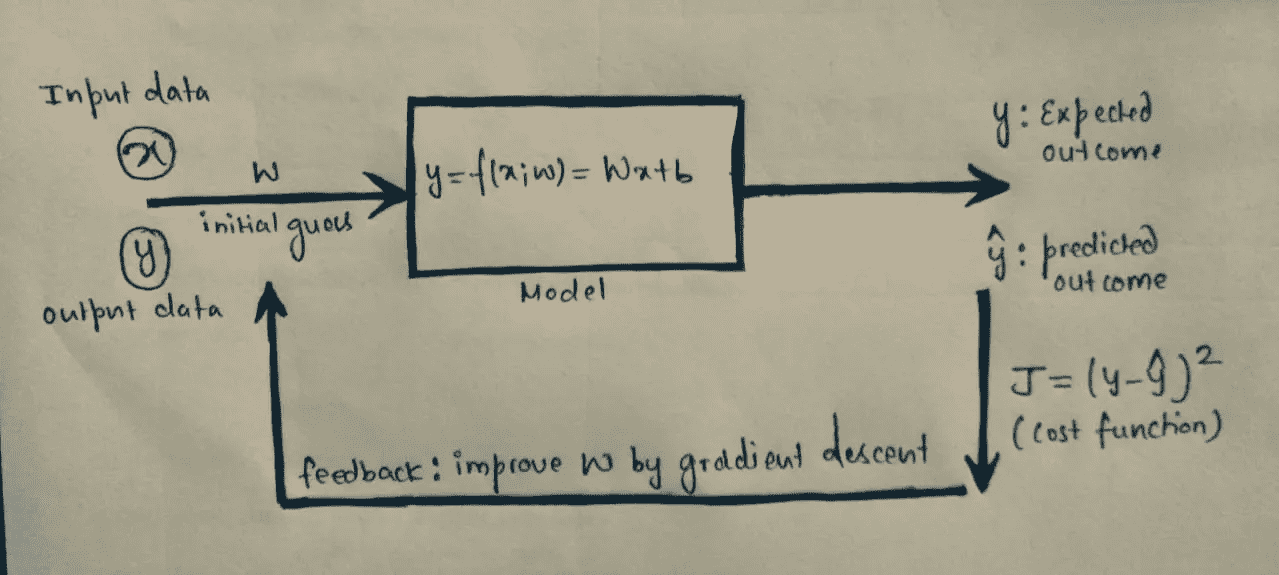 Input data
x
w
initial guess
y
output data
y=f(x;w)= Wx+b
Model
y: Expected
outcome
ŷ: predicted
outcome
J=(y-ŷ)²
(cost function)
feedback: improve w by gradient descent